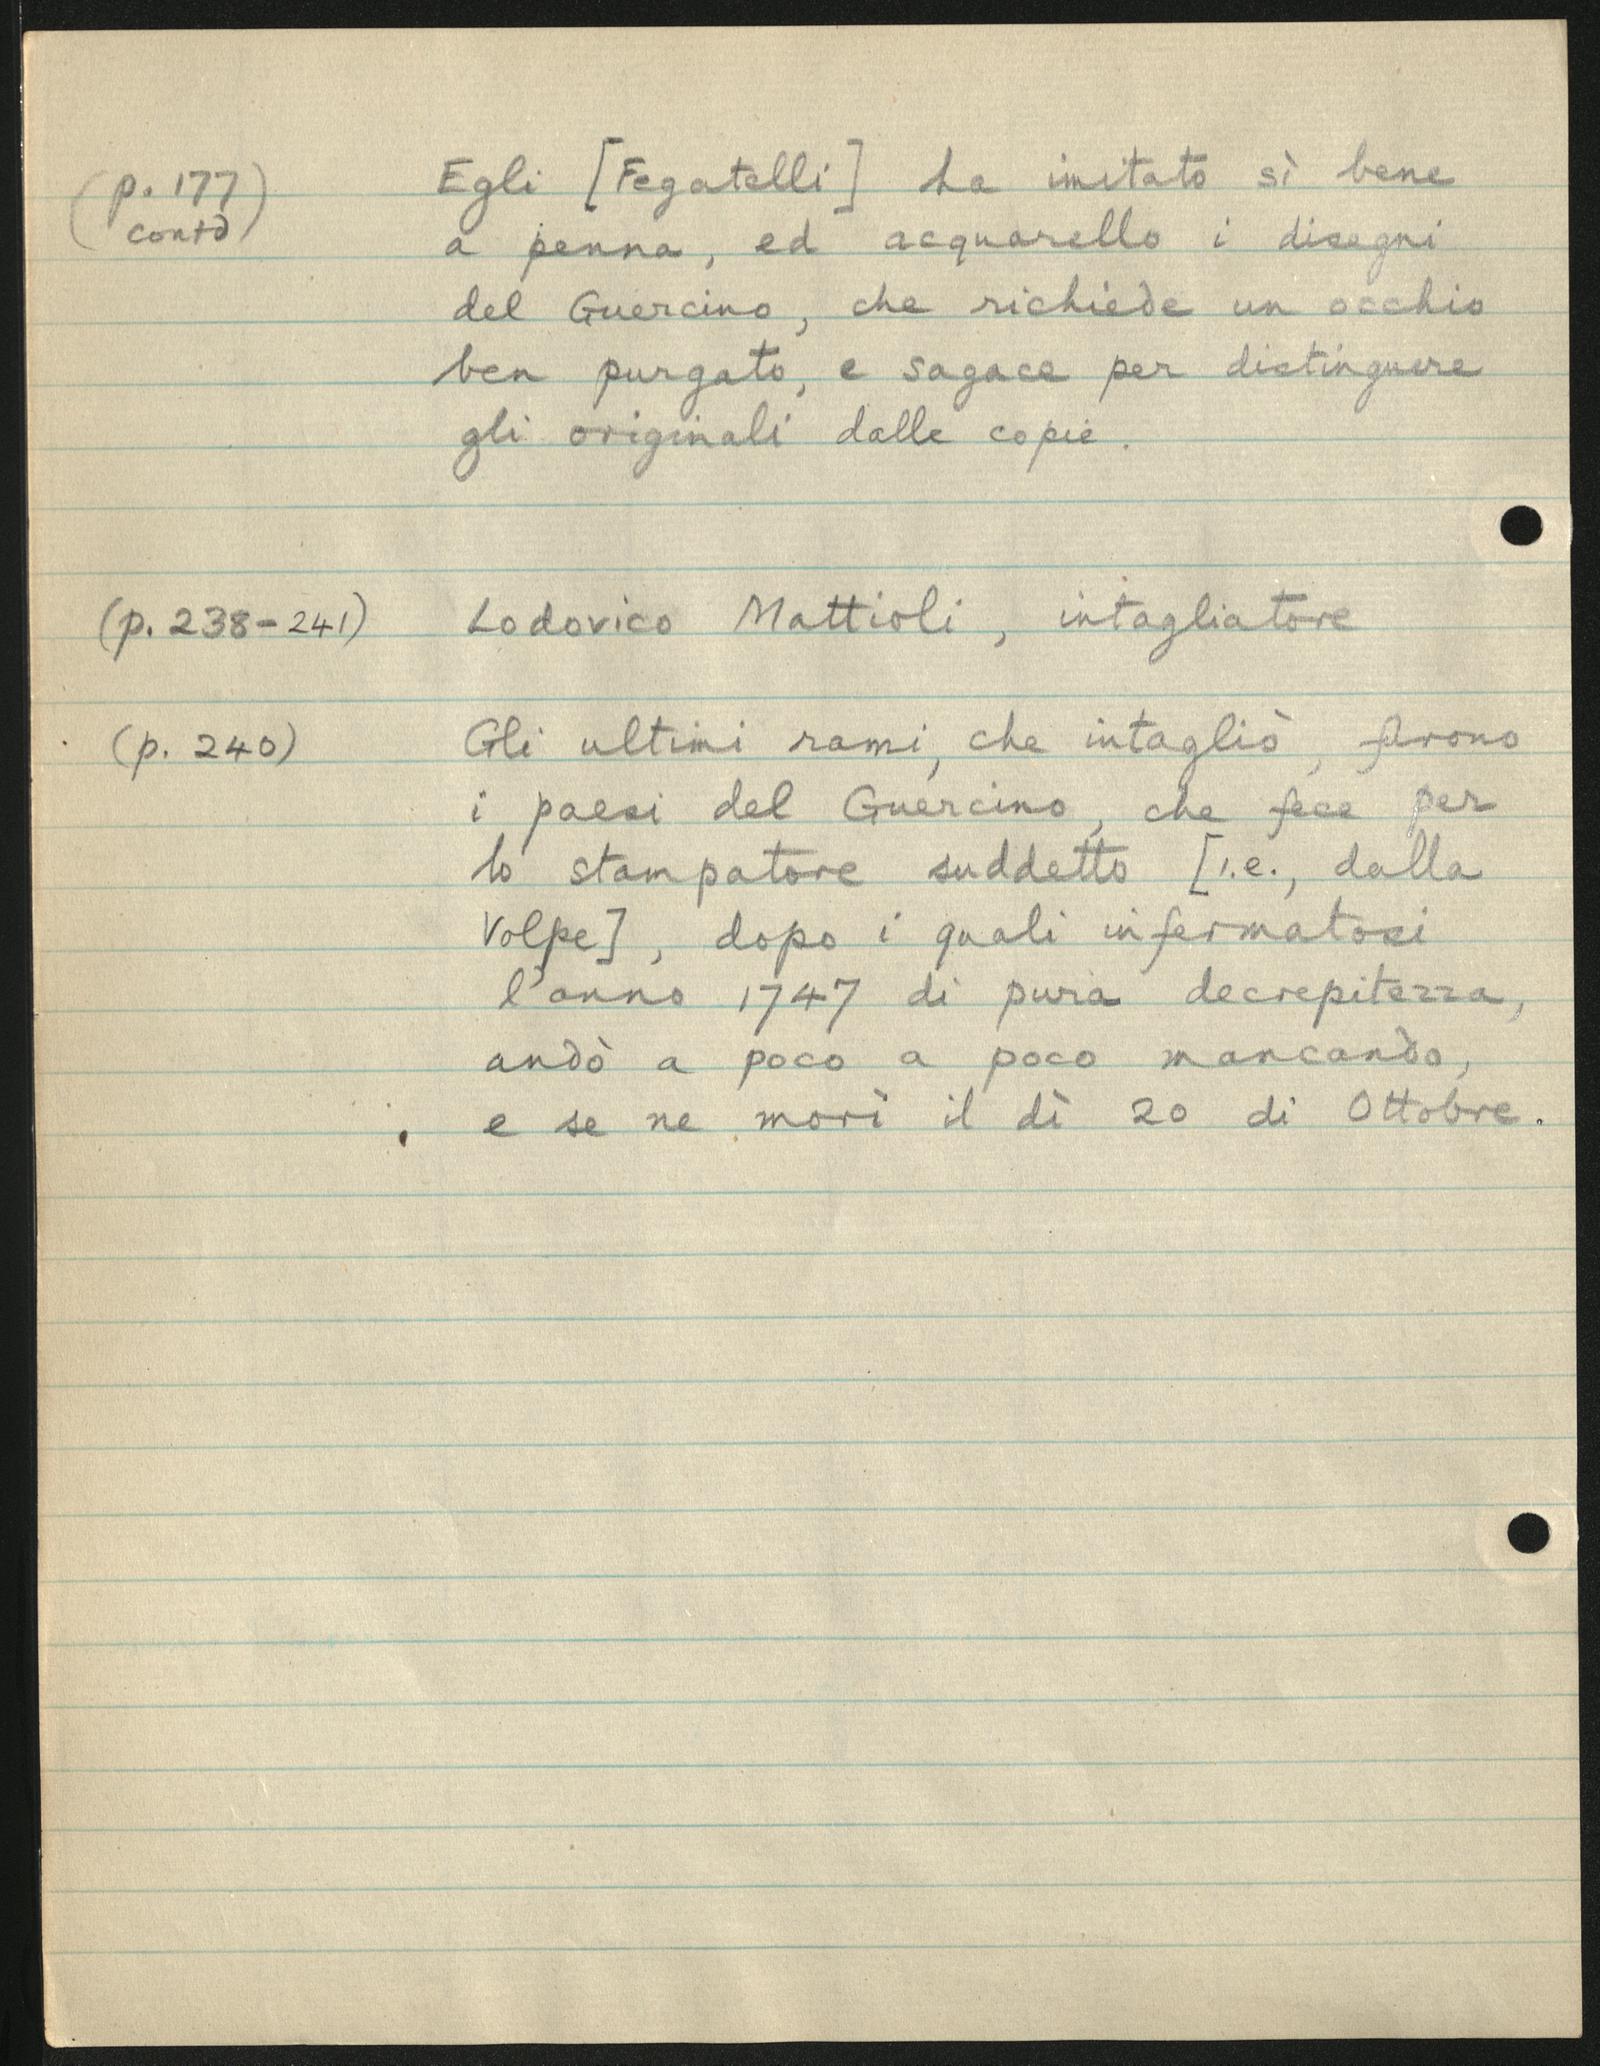 (p. 177 contd) Egli [Fegatelli] ha imitato sì bene
a penna, ed acquarello i disegni
del Guercino, che richiede un occhio
ben purgato, e sagace per distinguere
gli originali dalle copie.
(p. 238-241) Lodovico Mattioli, intagliatore
(p. 240) Gli ultimi rami, che intagliò, furono
i paesi del Guercino, che fece per
lo stampatore suddetto [i.e., dalla
Volpe], dopo i quali infermatosi
l'anno 1747 di pura decrepitezza,
andò a poco a poco mancando,
e se ne morì il dì 20 di Ottobre.